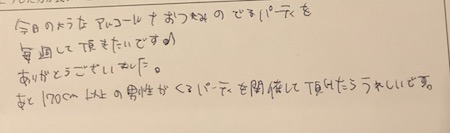 今日のような アルコール + おつまみ のでるパーティを
毎週して頂きたいです♪
ありがとうございました。
あと 170cm 以上の男性がくるパーティを開催して頂けたらうれしいです。